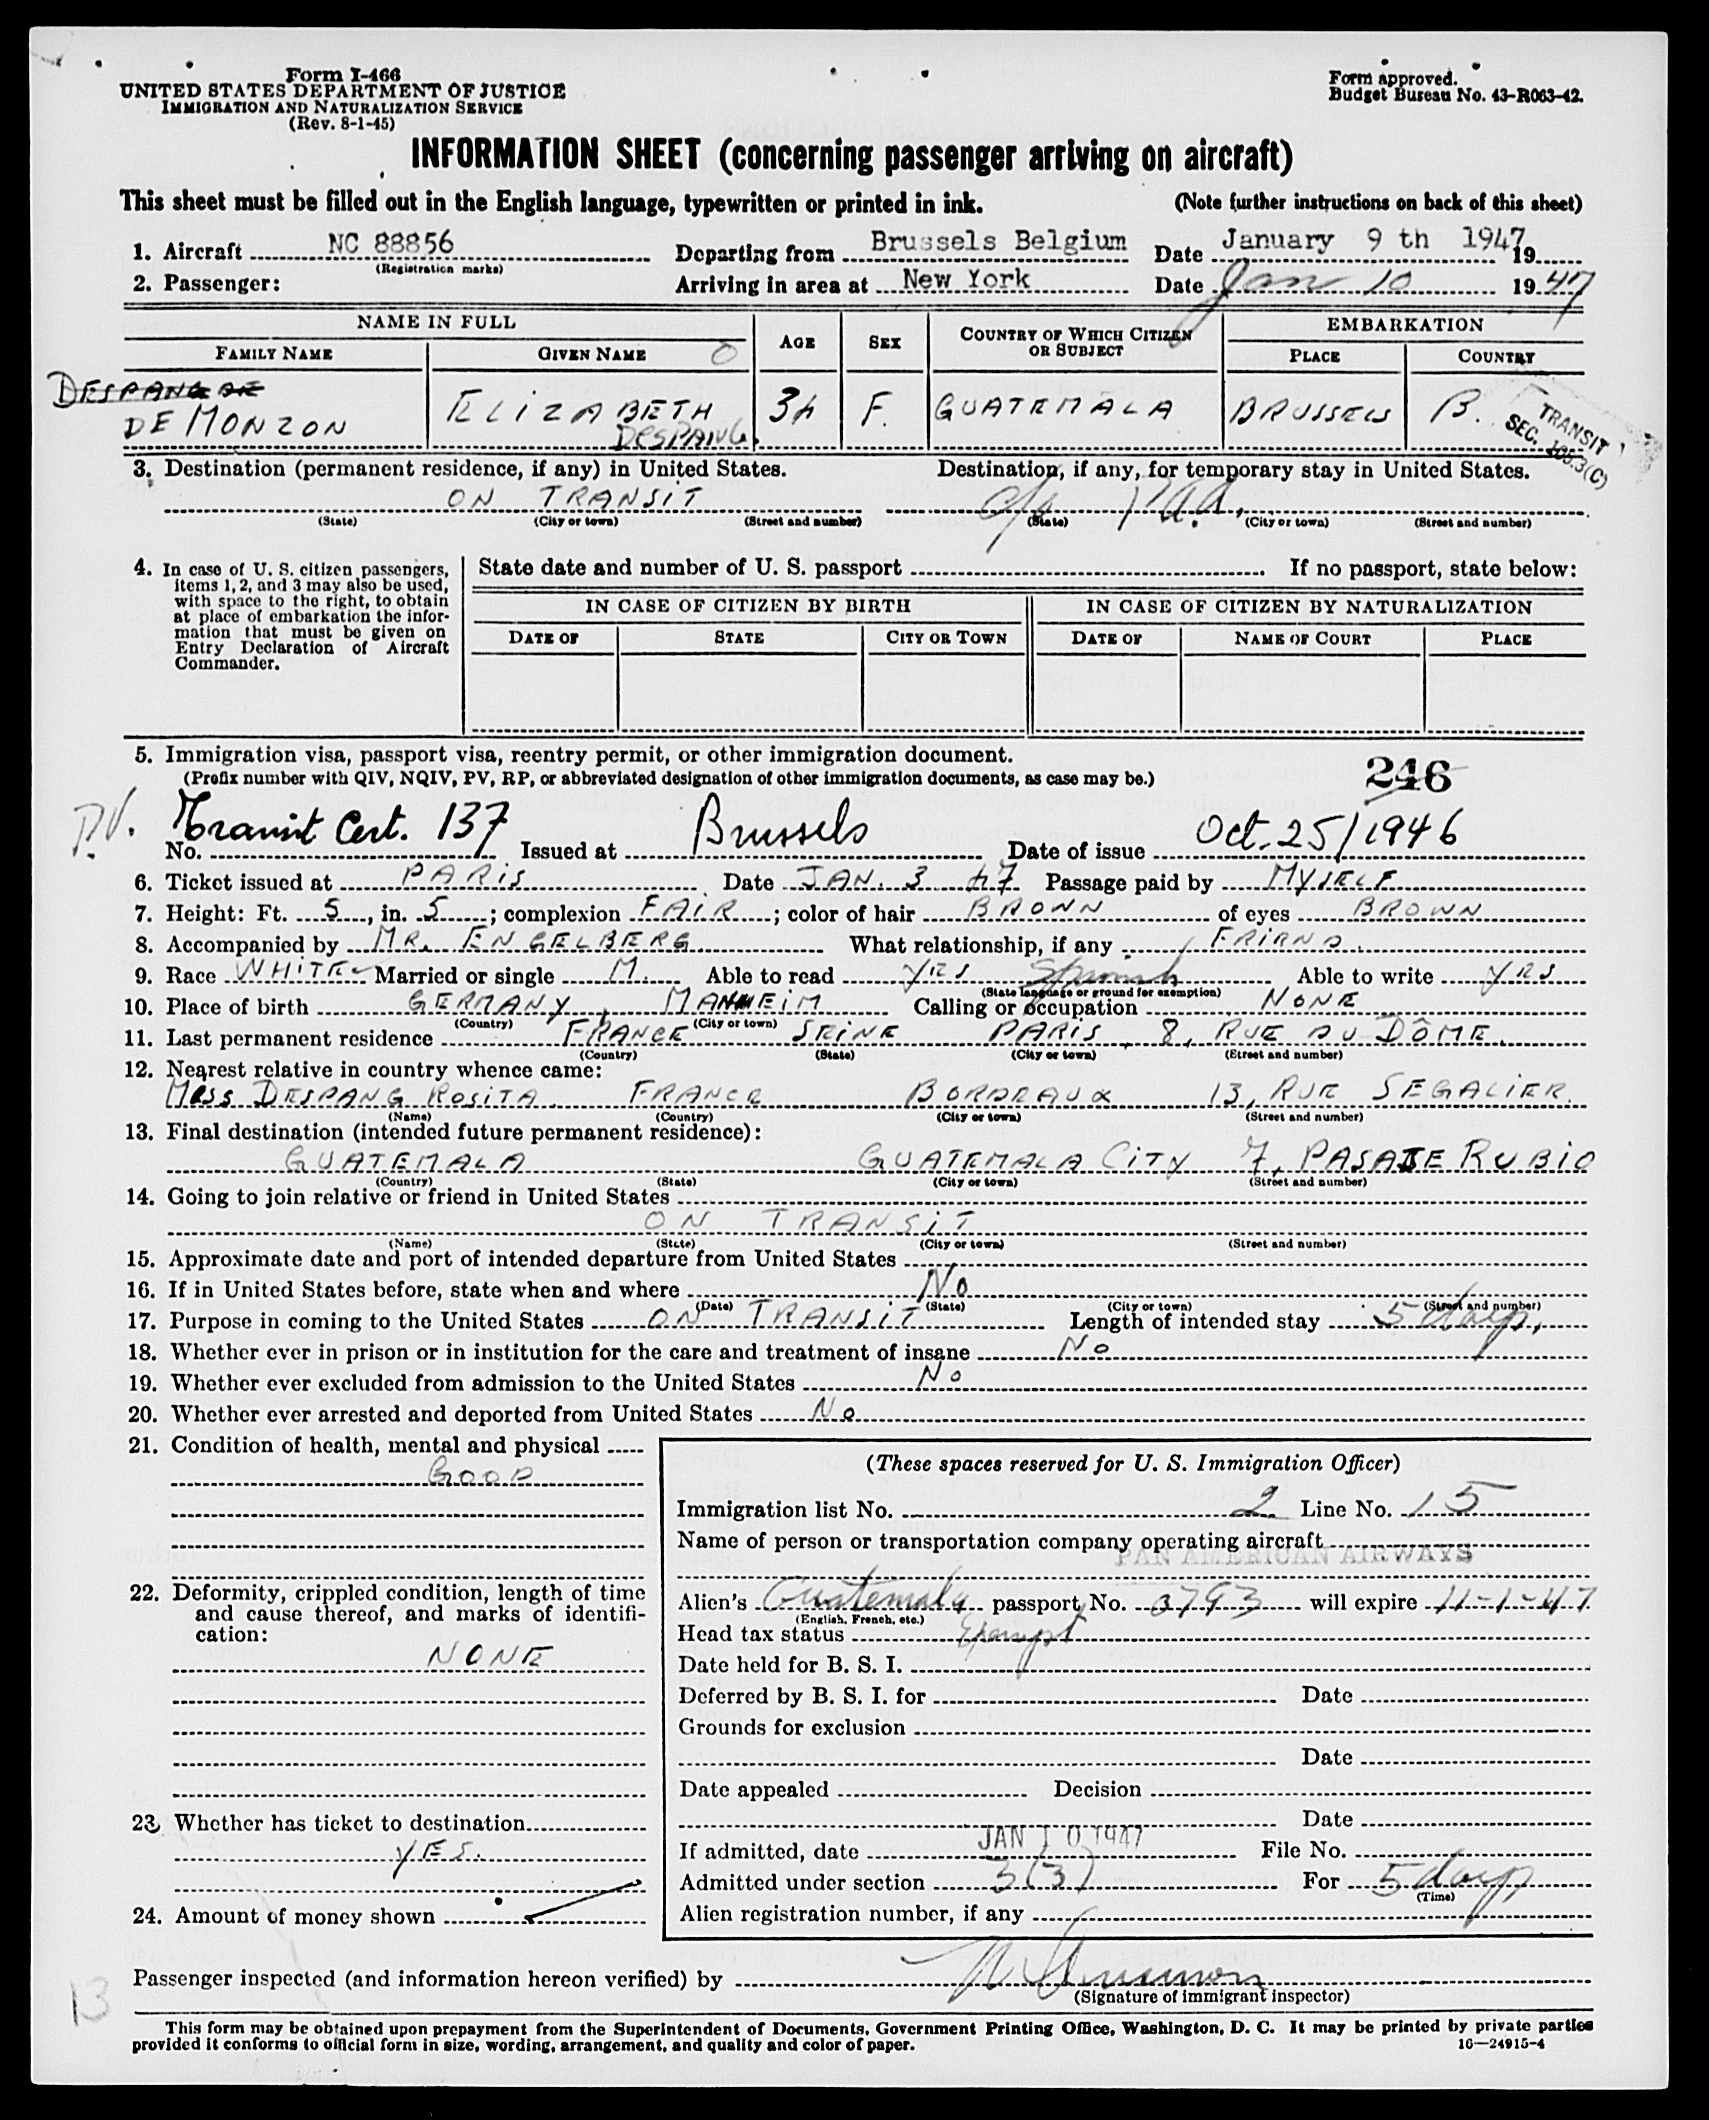 Form I-466
UNITED STATES DEPARTMENT OF JUSTICE
IMMIGRATION AND NATURALIZATION SERVICE
(Rev. 8-1-45)
Form approved.
Budget Bureau No. 43-R063-42.
INFORMATION SHEET (concerning passenger arriving on aircraft)
This sheet must be filled out in the English language, typewritten or printed in ink. (Note further instructions on back of this sheet)
1. Aircraft NC 88856 Departing from Brussels Belgium Date January 9 th 1947 19
(Registration marks)
2. Passenger: Arriving in area at New York Date Jan 10 1947
NAME IN FULL AGE SEX COUNTRY OF WHICH CITIZEN OR SUBJECT EMBARKATION
FAMILY NAME GIVEN NAME PLACE COUNTRY
DESPANG DE
DE MONZON ELIZABETH DESPANG 34 F. GUATEMALA BRUSSELS B.
TRANSIT
SEC. 105.3(C)
3. Destination (permanent residence, if any) in United States. Destination, if any, for temporary stay in United States.
ON TRANSIT c/o P.A.A.
(State) (City or town) (Street and number) (State) (City or town) (Street and number)
4. In case of U. S. citizen passengers, items 1, 2, and 3 may also be used, with space to the right, to obtain at place of embarkation the information that must be given on Entry Declaration of Aircraft Commander.
State date and number of U. S. passport If no passport, state below:
IN CASE OF CITIZEN BY BIRTH IN CASE OF CITIZEN BY NATURALIZATION
DATE OF STATE CITY OR TOWN DATE OF NAME OF COURT PLACE
5. Immigration visa, passport visa, reentry permit, or other immigration document.
(Prefix number with QIV, NQIV, PV, RP, or abbreviated designation of other immigration documents, as case may be.)
246
P.V. No. Transit Cert. 137 Issued at Brussels Date of issue Oct. 25/1946
6. Ticket issued at PARIS Date JAN. 3 47 Passage paid by MYSELF
7. Height: Ft. 5, in. 5; complexion FAIR; color of hair BROWN of eyes BROWN
8. Accompanied by MR. ENGELBERG What relationship, if any FRIEND.
9. Race WHITE Married or single M. Able to read YES Spanish Able to write YES
(State language or ground for exemption)
10. Place of birth GERMANY, MANHEIM Calling or occupation NONE
(Country) (City or town)
11. Last permanent residence FRANCE SEINE PARIS, 8, RUE DU DÔME.
(Country) (State) (City or town) (Street and number)
12. Nearest relative in country whence came:
Mess DESPANG ROSITA. FRANCE BORDEAUX 13, RUE SEGALIER.
(Name) (Country) (City or town) (Street and number)
13. Final destination (intended future permanent residence):
GUATEMALA GUATEMALA CITY 7, PASAJE RUBIO
(Country) (State) (City or town) (Street and number)
14. Going to join relative or friend in United States
ON TRANSIT
(Name) (State) (City or town) (Street and number)
15. Approximate date and port of intended departure from United States
16. If in United States before, state when and where No
(Date) (State) (City or town) (Street and number)
17. Purpose in coming to the United States ON TRANSIT Length of intended stay 5 days,
18. Whether ever in prison or in institution for the care and treatment of insane No
19. Whether ever excluded from admission to the United States No
20. Whether ever arrested and deported from United States No
21. Condition of health, mental and physical
GOOD
22. Deformity, crippled condition, length of time and cause thereof, and marks of identification:
NONE
23. Whether has ticket to destination
YES.
24. Amount of money shown
(These spaces reserved for U. S. Immigration Officer)
Immigration list No. 2 Line No. 15
Name of person or transportation company operating aircraft
PAN AMERICAN AIRWAYS
Alien's Guatemala passport No. 3793 will expire 11-1-47
(English, French, etc.)
Head tax status Exempt
Date held for B. S. I.
Deferred by B. S. I. for Date
Grounds for exclusion
Date
Date appealed Decision
Date
If admitted, date JAN 10 1947 File No.
Admitted under section 3(3) For 5 days
(Time)
Alien registration number, if any
13
Passenger inspected (and information hereon verified) by
(Signature of immigrant inspector)
This form may be obtained upon prepayment from the Superintendent of Documents, Government Printing Office, Washington, D. C. It may be printed by private parties
provided it conforms to official form in size, wording, arrangement, and quality and color of paper.
16—24915-4